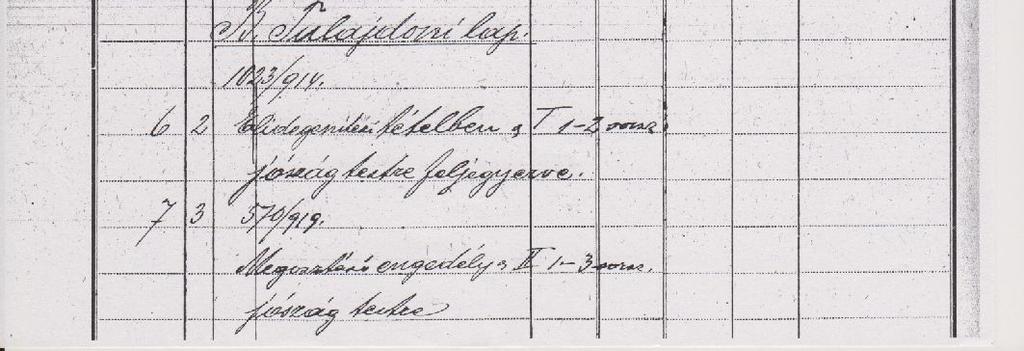 B. Tulajdoni lap.
1023/914.
6 2 Elidegenítési tételben a I 1-2 sorsz.
jószág testre feljegyezve.
7 3 570/919.
Megosztási engedély a II 1-3 sorsz.
jószág testre